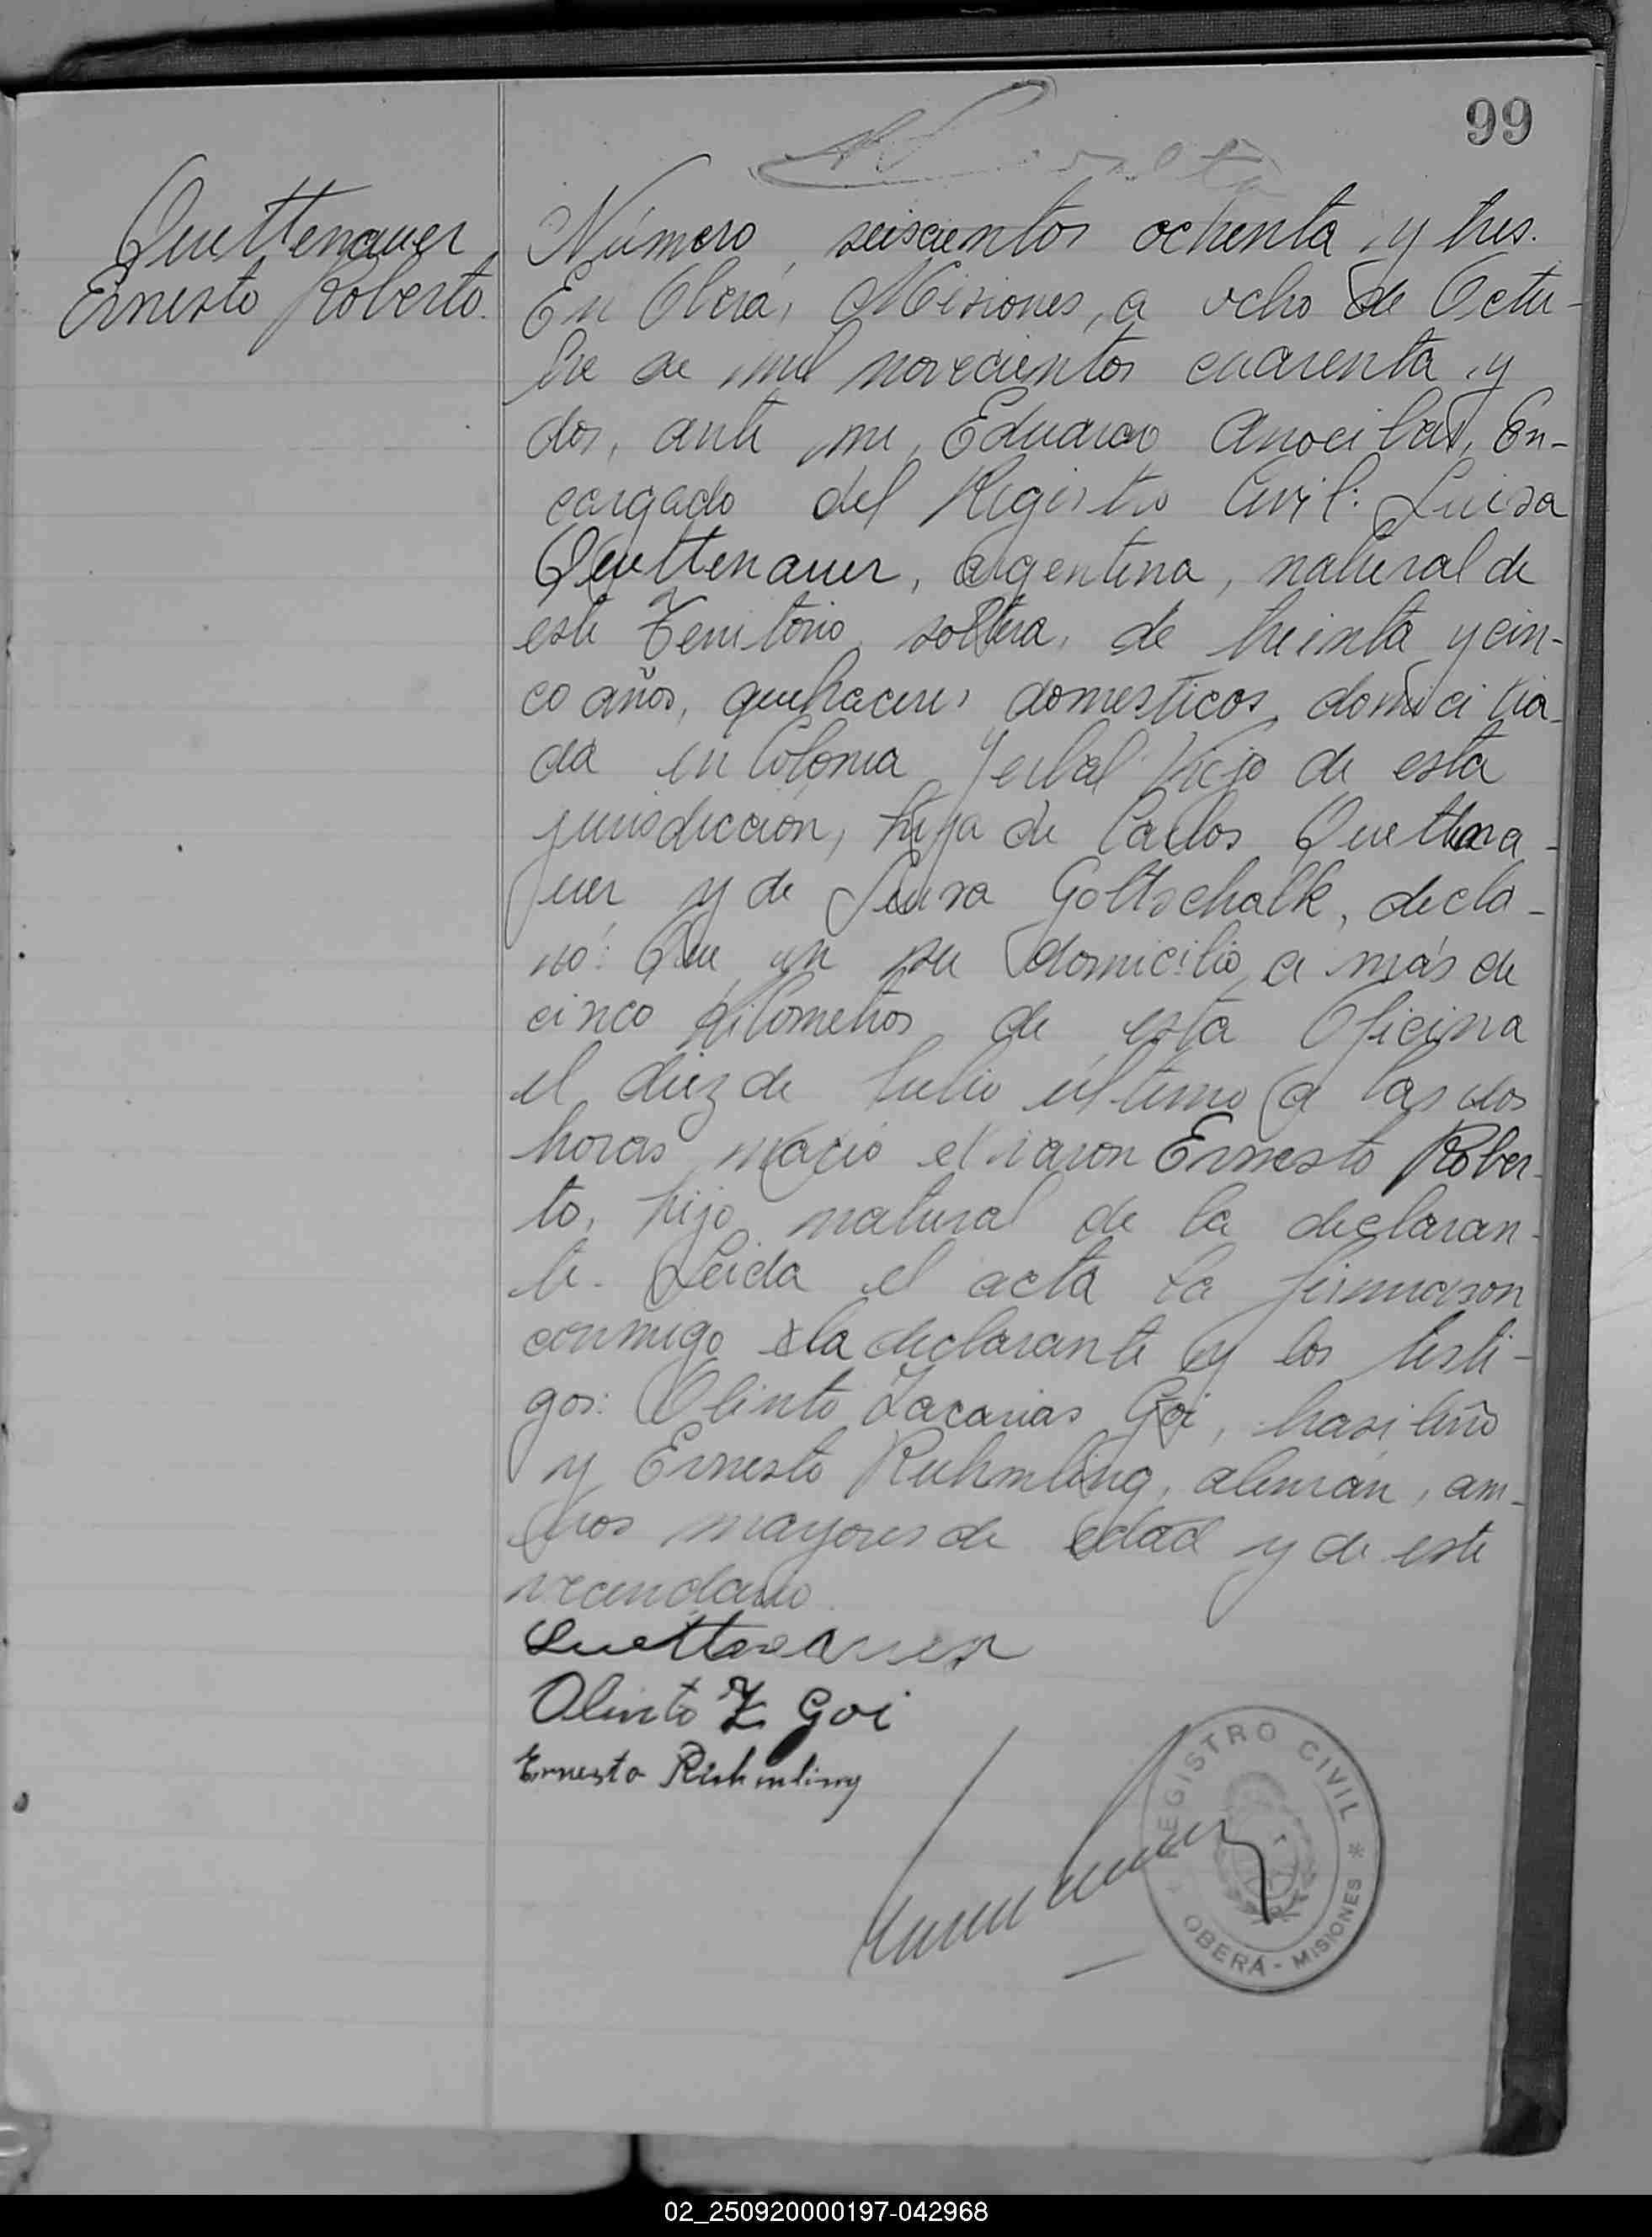 99
Quettenauer
Ernesto Roberto.
Número seiscientos ochenta y tres.
En Oberá, Misiones, a ocho de Octu-
bre de mil novecientos cuarenta y
dos, ante mi, Eduardo Anocibar, En-
cargado del Registro Civil: Luisa
Quettenauer, argentina, natural de
este Territorio, soltera, de treinta y cin-
co años, quehaceres domesticos, domicilia-
da en Colonia Yerbal Viejo de esta
jurisdicción, hija de Carlos Quettena-
uer y de Luisa Gottschalk, decla-
ró: Que en su domicilio, a más de
cinco kilometros de esta Oficina
el diez de Julio último a las dos
horas nació el varon Ernesto Rober-
to, hijo natural de la declaran-
te. Leida el acta la firmaron
conmigo la declarante y los testi-
gos: Olinto Zacarias Goi, brasileño
y Ernesto Ruhmling, alemán, am-
bos mayores de edad y de este
vecindario.
Quettenauer
Olinto Z. Goi
Ernesto Rühmling
REGISTRO CIVIL
OBERÁ - MISIONES *
02_250920000197-042968